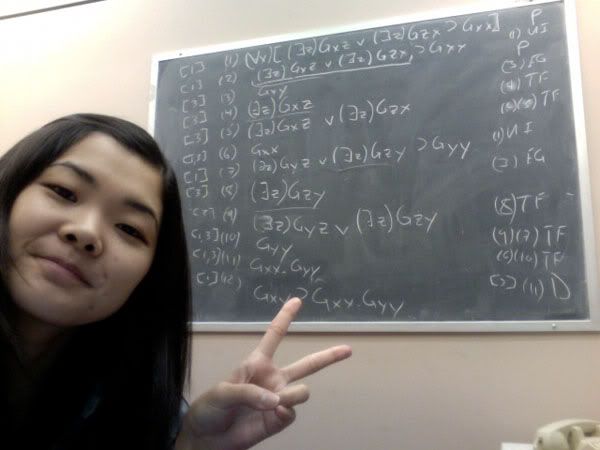 [1] (1) (∀x)[(∃z)Gxz ∨ (∃z)Gzx ⊃ Gxx] P
[1] (2) (∃z)Gxz ∨ (∃z)Gzx ⊃ Gxx (1) UI
[3] (3) Gxy P
[3] (4) (∃z)Gxz (3) EG
[3] (5) (∃z)Gxz ∨ (∃z)Gzx (4) TF
(6) Gxx TF
[1] (7) (∃z)Gyz ∨ (∃z)Gzy ⊃ Gyy (1) UI
[3] (8) (∃z)Gzy EG
(9) (∃z)Gyz ∨ (∃z)Gzy (8) TF
[1,3] (10) Gyy (9)(7) TF
[1,3] (11) Gxx . Gyy (6)(10) TF
[1] (12) Gxy ⊃ Gxx . Gyy [3] (11) D